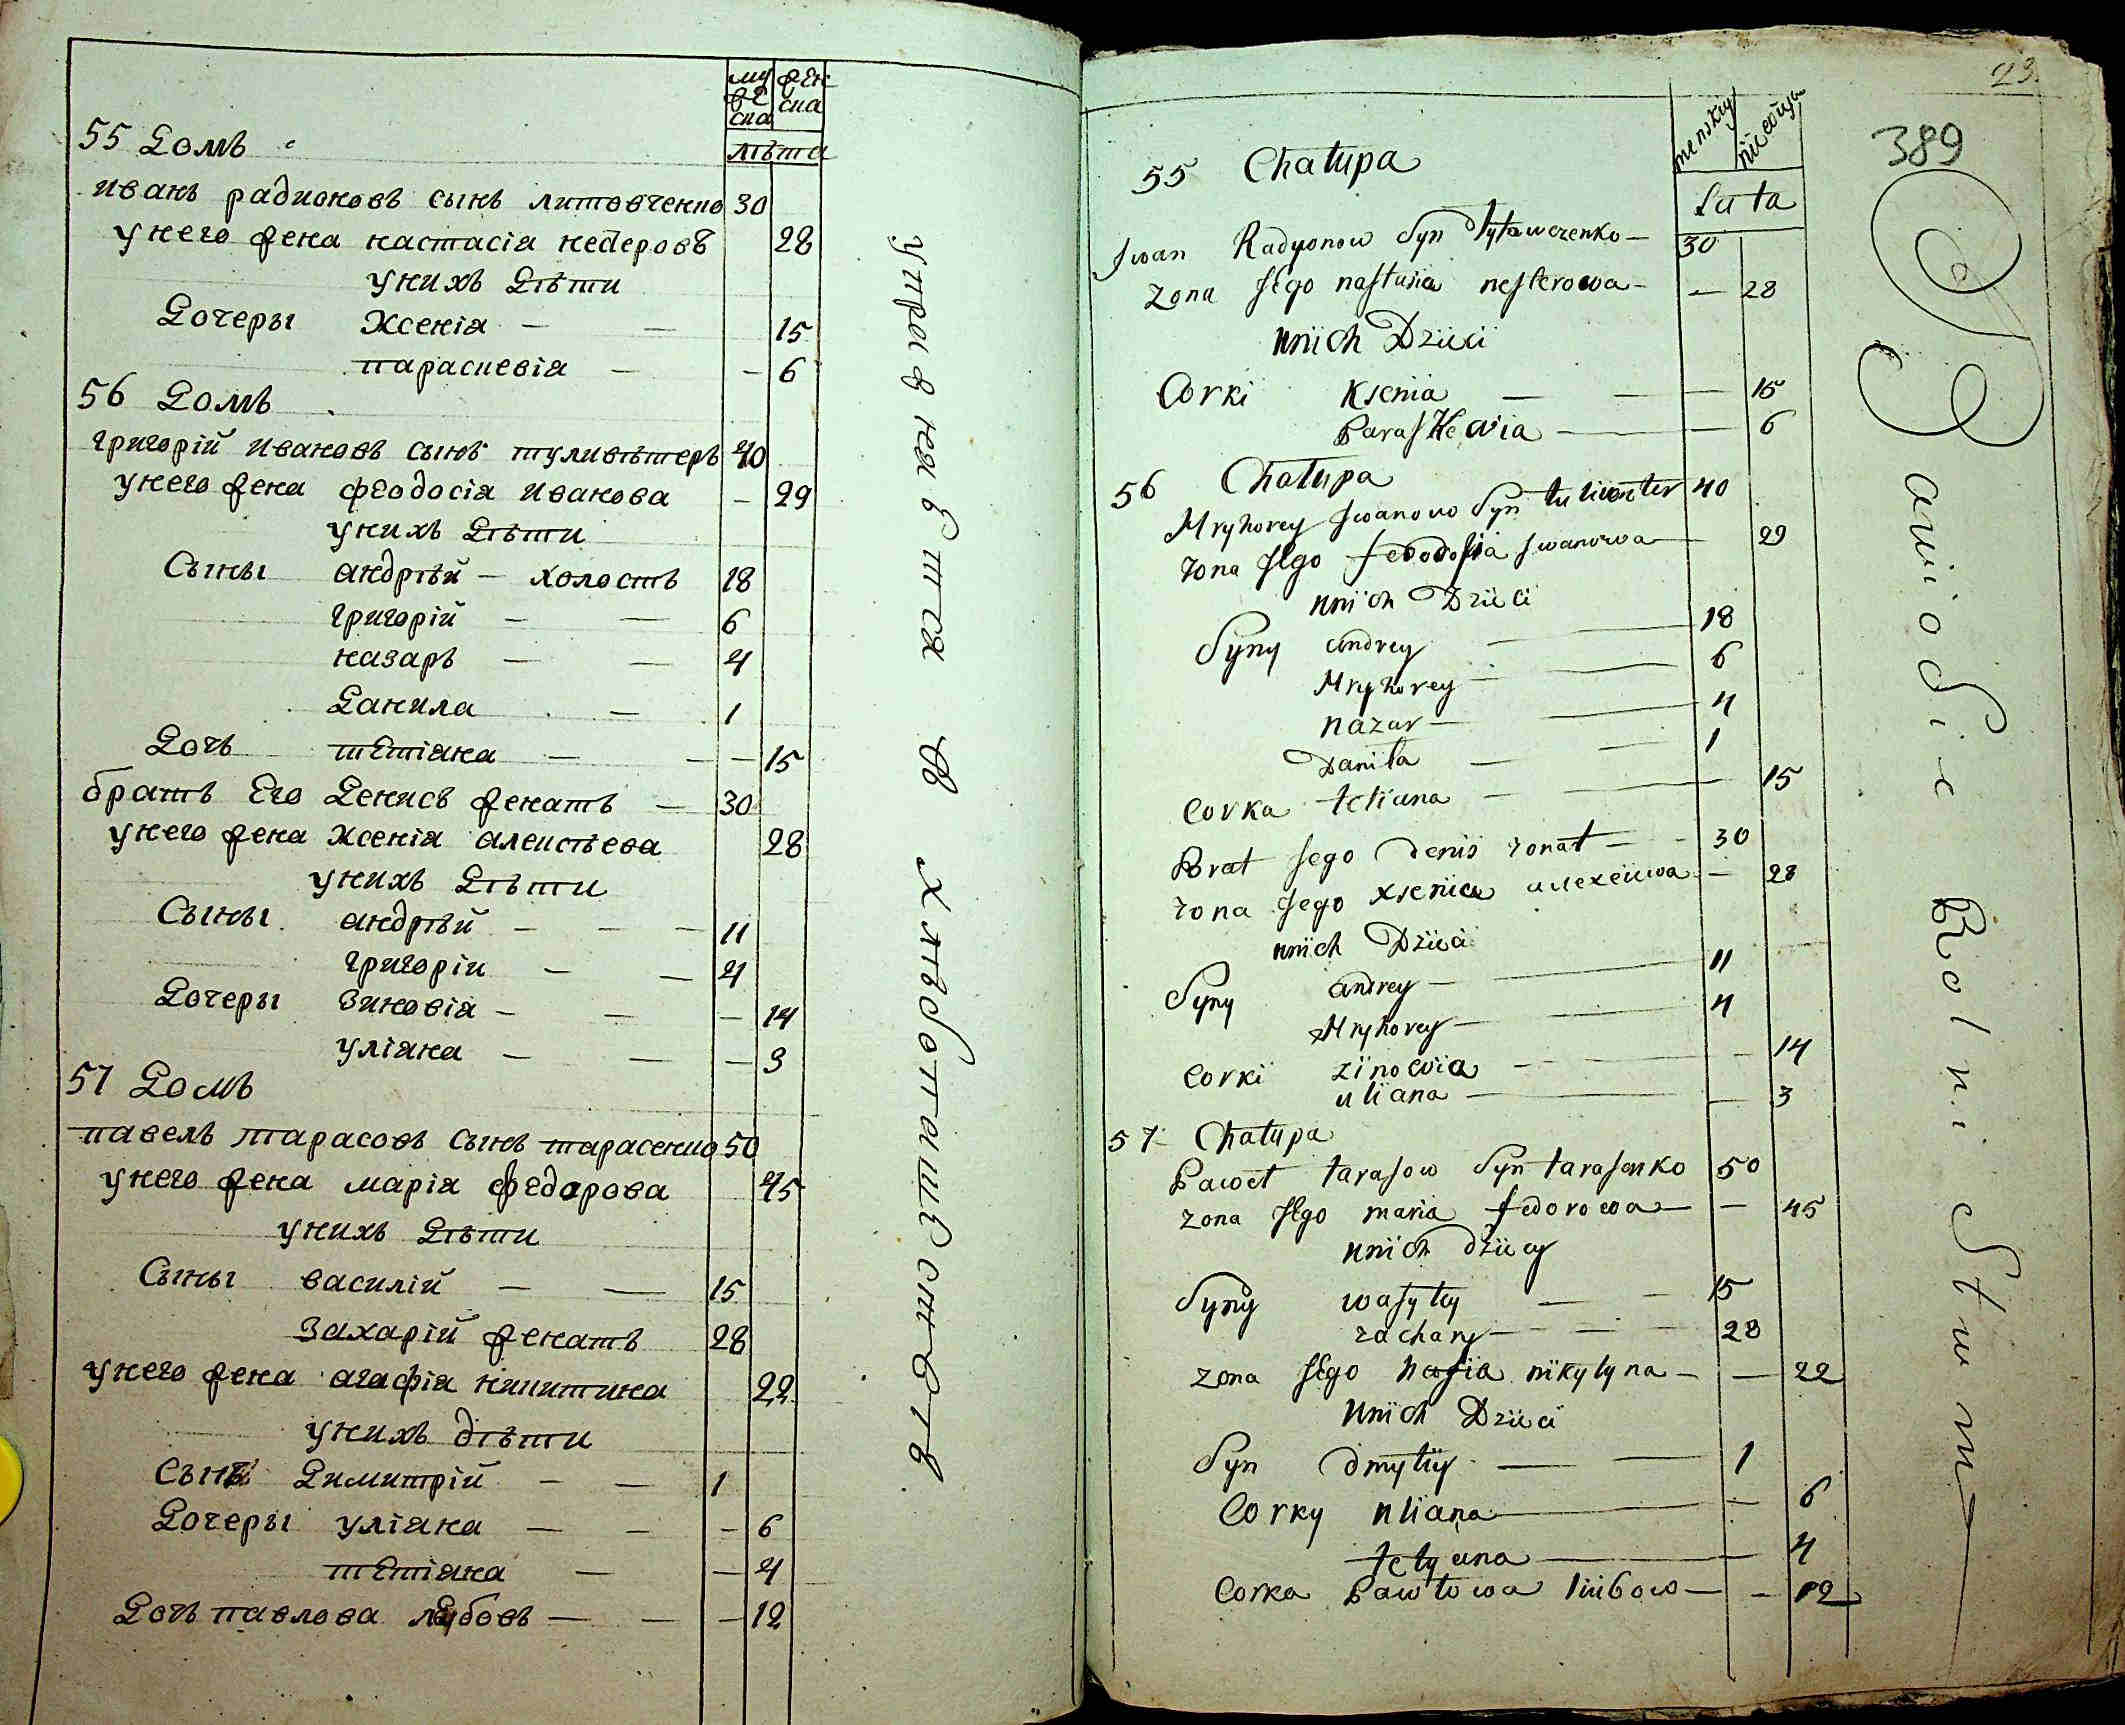 му
же
ска
жен
ска
лѣта
55 Домъ
иванъ радионовъ сынъ литовченко 30
унего жена настасія нестеровъ 28
унихъ Дѣти
Дочеры Ксенія — — 15
параскевія — — 6
56 Домъ
григорій ивановъ сынъ туливѣтеръ 40
унего жена феодосія иванова — 29
унихъ Дѣти
Сыны андрѣй — холостъ 18
григорій — — 6
назаръ — — 4
Данила — 1
Дочь тетіана — — — 15
братъ Его Денисъ женатъ — 30
унего жена Ксенія алексѣева 28
унихъ Дѣти
Сыны андрѣй — — — 11
григоріи — — 4
Дочеры зиновія — — — 14
уліана — — — 3
57 Домъ
павелъ тарасовъ сынъ тарасенко 50
унего жена марія федорова 45
унихъ Дѣти
Сыны василій — — 15
Захарій женатъ 28
унего жена агафія никитина 22
унихъ дѣти
Сынъ Димитрій — — 1
Дочеры уліана — — — 6
тетіана — — 4
Дочь павлова любовъ — — — 12
упражнается в хлѣбопашествѣ
23.
389
menskiy
niewiscya
Lata
55 Chałupa
Jwan Radyonow Syn Lytawczenko — 30
Zona Jego nastasia nesterowa — — 28
unich Dzieci
Corki Ksenia — — — 15
Paraskewia — — 6
56 Chałupa
Hryhorey Jwanow Syn tuliwiter 40
zona Jego feodosia Jwanowa — 29
unich Dzieci
Syny andrey — — 18
Hryhorey — — 6
nazar — — 4
Daniła — — 1
Corka tetiana — — — 15
Brat Jego denis zonat — — 30
zona Jego xsenica alexeiewa — 28
unich Dzieci
Syny andrey — — 11
Hryhorey — — 4
Corki zinowia — — — 14
uliana — — — 3
57 Chałupa
Paweł tarasow Syn tarasenko 50
zona Jego maria fedorowa — — 45
unich dziecy
Syny wasyly — — 15
zachary — — — 28
zona Jego hafia nikytyna — — 22
unich Dzieci
Syn dmytiy — — 1
Corky uliana — — 6
tetyana — — 4
Corka Pawłowa liubow — — 12
Zawiodie Rolnistwm